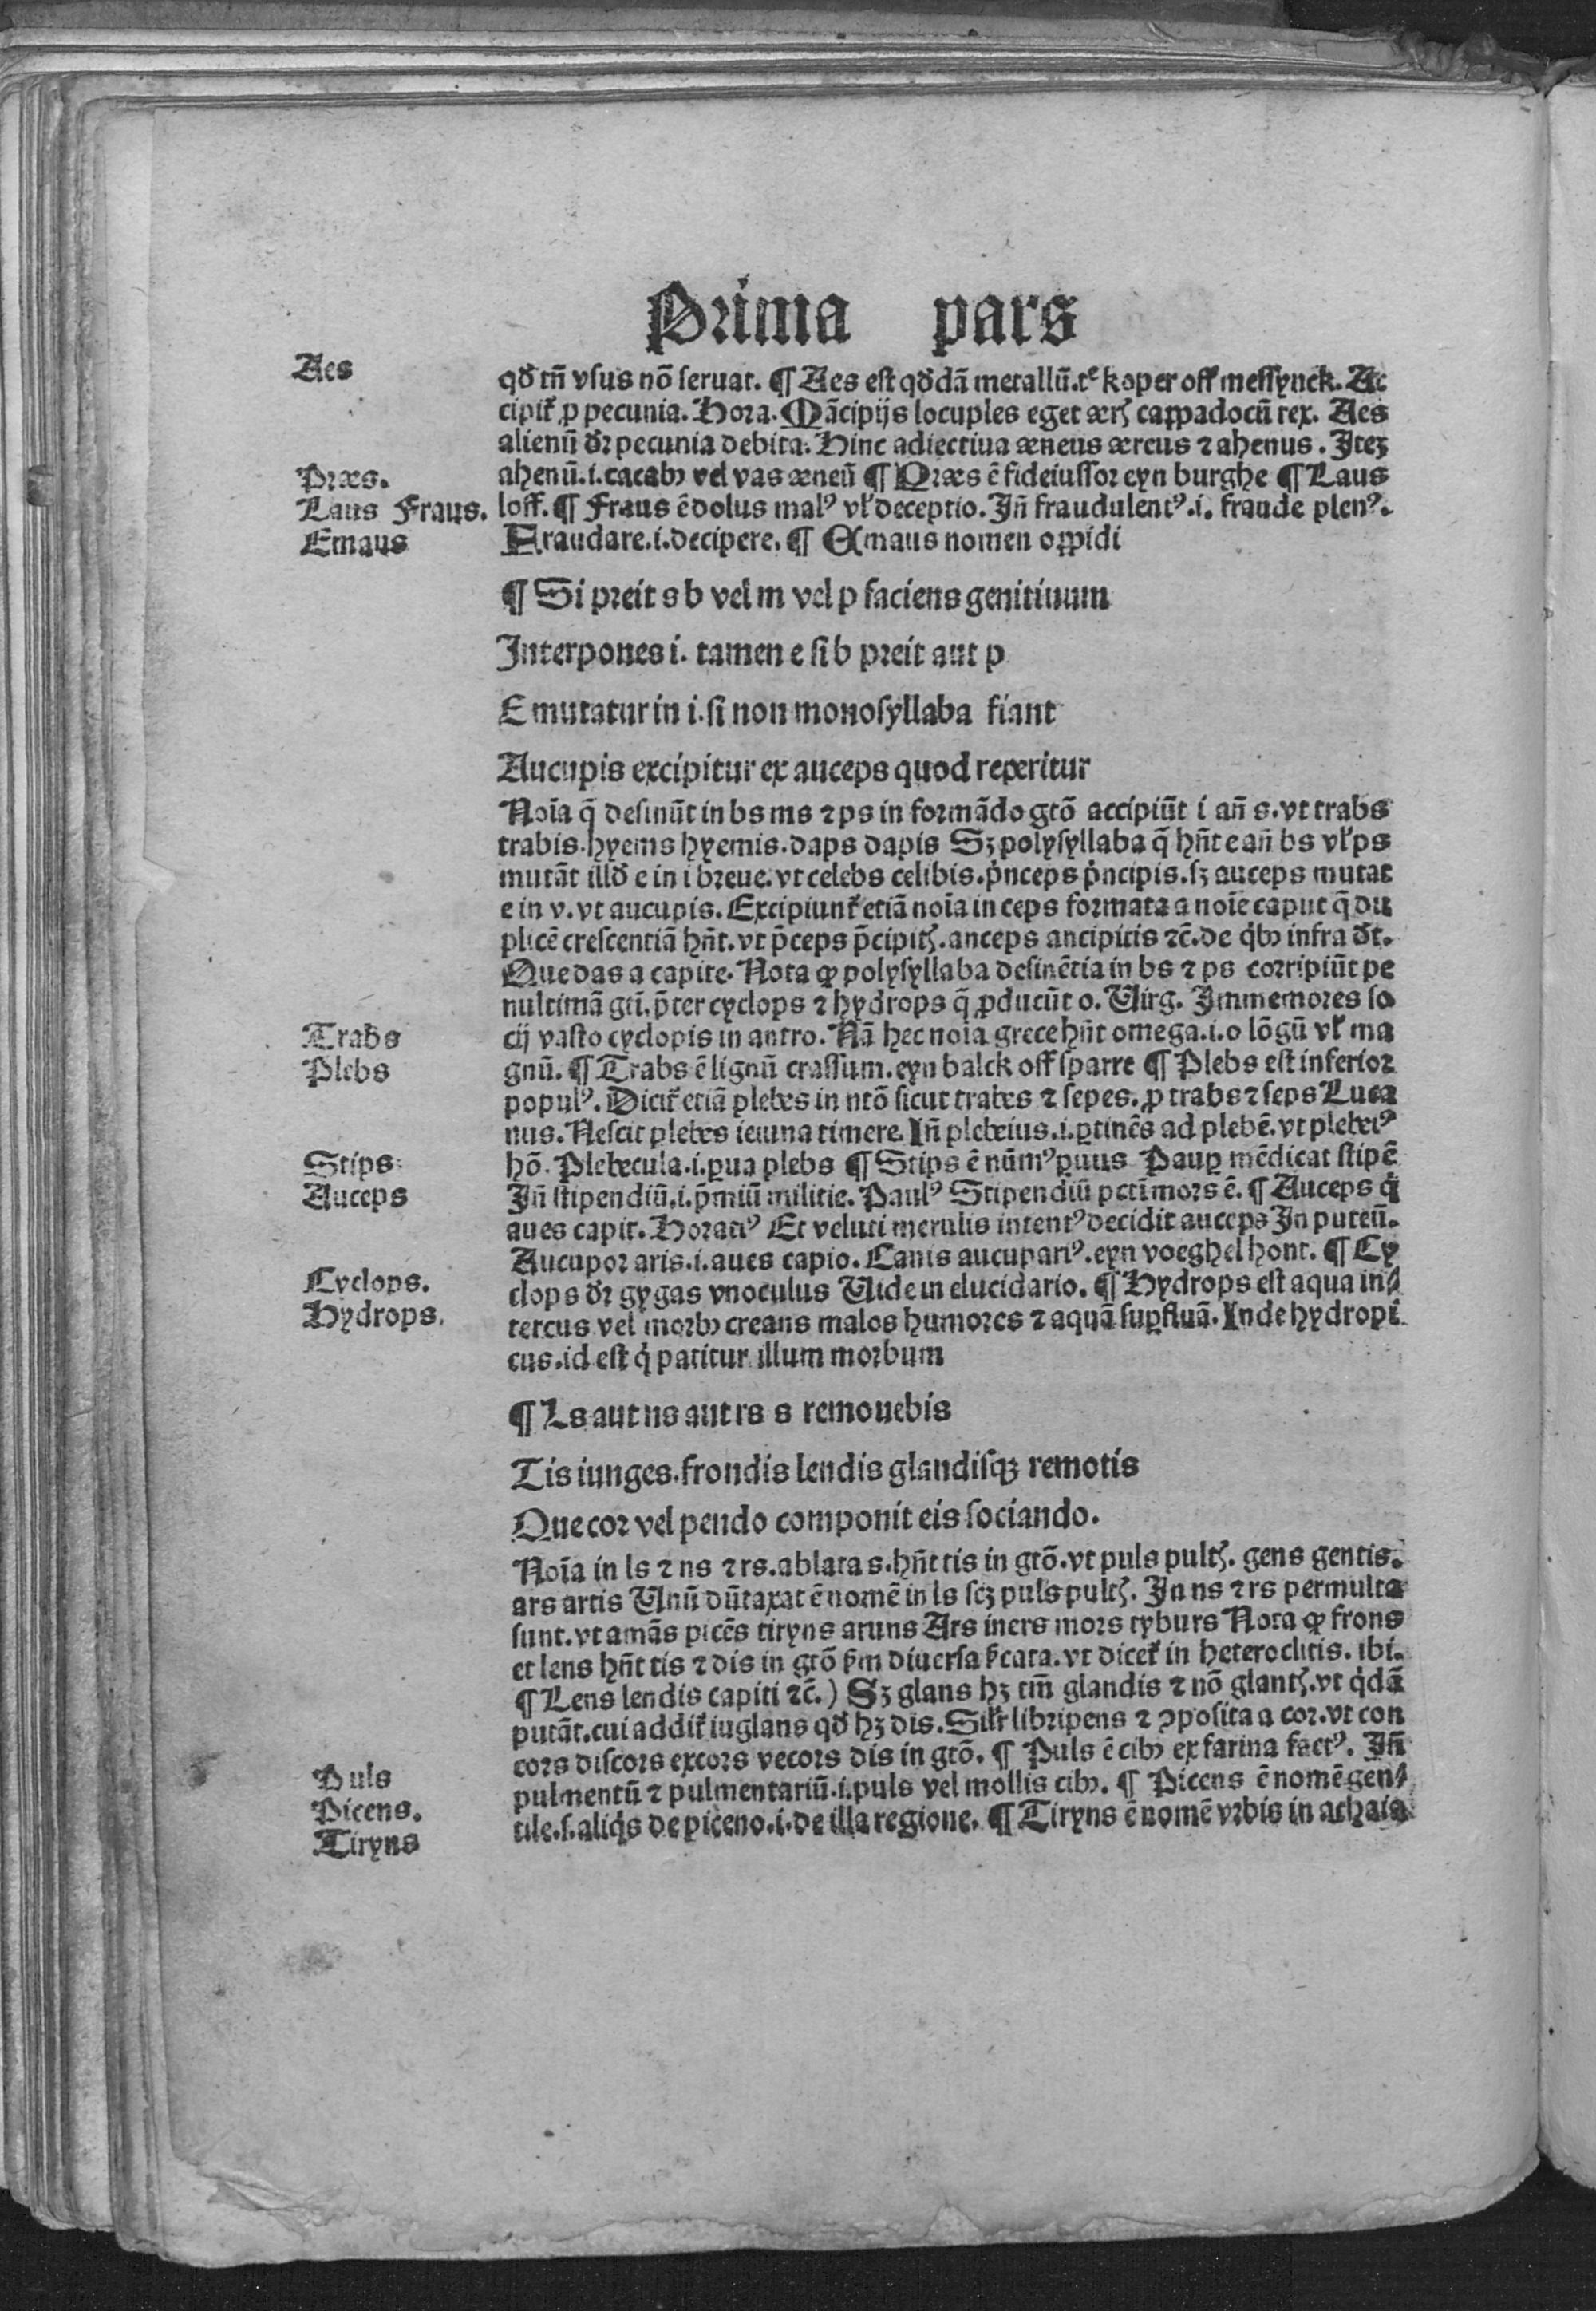 Prima pars
Aes
qđ tñ vsus nõ seruat. ¶ Aes est qđdã metallũ.tᵉ koper off messynck. Ac
cipit᷑ ꝓ pecunia. Hora. Mãcipijs locuples eget ærꝭ cappadocũ rex. Aes
alienũ dꝛ pecunia debita. Hinc adiectiua æneus æreus ⁊ ahenus. Iteꝫ
Præs.
ahenũ.i.cacabꝰ vel vas æneũ ¶ Præs ẽ fideiussor eyn burghe ¶ Laus
Laus Fraus.
loff. ¶ Fraus ẽ dolus malꝰ vl̕ deceptio. Iñ fraudulentꝰ.i. fraude plenꝰ.
Emaus
Fraudare.i.decipere. ¶ Emaus nomen oppidi
¶ Si preit s b vel m vel p faciens genitiuum
Interpones i. tamen e si b preit aut p
E mutatur in i.si non monosyllaba fiant
Aucupis excipitur ex auceps quod reperitur
Noĩa q̃ desinũt in bs ms ⁊ ps in formãdo gtõ accipiũt i añ s.vt trabs
trabis.hyems hyemis.daps dapis Sꝫ polysyllaba q̃ hñt e añ bs vl̕ ps
mutãt illđ e in i breue.vt celebs celibis.p̕nceps p̕ncipis.sꝫ auceps mutat
e in v.vt aucupis. Excipiunt᷑ etiã noĩa in ceps formata a noĩe caput q̃ du
plicẽ crescentiã hñt.vt p̃ceps p̃cipitꝭ.anceps ancipitis ⁊c̃.de q̕bꝰ infra dt̕.
Que das a capite. Nota ꝙ polysyllaba desinẽtia in bs ⁊ ps corripiũt pe
nultimã gti̕.p̃ter cyclops ⁊ hydrops q̃ ꝓducũt o. Virg. Immemores so
Trabs
cij vasto cyclopis in antro. Nã hec noĩa grece hñt omega.i.o lõgũ vl̕ ma
Plebs
gnũ. ¶ Trabs ẽ lignũ crassum.eyn balck off sparre ¶ Plebs est inferior
populꝰ. Dicit᷑ etiã plebes in ntõ sicut trabes ⁊ sepes.ꝓ trabs ⁊ seps Luca
nus. Nescit plebes ieiuna timere. Iñ plebeius.i.ꝑtinẽs ad plebẽ.vt plebeiꝰ
Stips
hõ. Plebecula.i.ꝑua plebs ¶ Stips ẽ nũmꝰ ꝑuus Pauꝑ mẽdicat stipẽ
Auceps
Iñ stipendiũ.i.p̃miũ militie. Paulꝰ Stipendiũ pcti̕ mors ẽ. ¶ Auceps q̕
aues capit. Horatiꝰ Et veluti merulis intentꝰ decidit auceps In puteũ.
Aucupor aris.i.aues capio. Canis aucupariꝰ.eyn voeghel hont. ¶ Cy
Cyclops.
clops dꝛ gygas vnoculus Vide in elucidario. ¶ Hydrops est aqua in⸗
Hydrops.
tercus vel morbꝰ creans malos humores ⁊ aquã suꝑfluã. Inde hydropi
cus.id est q̕ patitur illum morbum
¶ Ls aut ns aut rs s remouebis
Tis iunges.frondis lendis glandisqꝫ remotis
Que cor vel pendo componit eis sociando.
Noĩa in ls ⁊ ns ⁊ rs.ablata s.hñt tis in gtõ.vt puls pultꝭ. gens gentis.
ars artis Vnũ dũtaxat ẽ nomẽ in ls scꝫ puls pultꝭ. In ns ⁊ rs permulta
sunt.vt amãs picẽs tiryns aruns Ars iners mors tyburs Nota ꝙ frons
et lens hñt tis ⁊ dis in gtõ ẜm diuersa ẜcata.vt dicet᷑ in heteroclitis. ibi.
¶ Lens lendis capiti ⁊c̃.) Sꝫ glans hꝫ tm̃ glandis ⁊ nõ glantꝭ.vt q̕dã
putãt.cui addit᷑ iuglans qđ hꝫ dis. Sil̕r libripens ⁊ ꝯposita a cor.vt con
cors discors excors vecors dis in gtõ. ¶ Puls ẽ cibꝰ ex farina factꝰ. Iñ
Puls
pulmentũ ⁊ pulmentariũ.i.puls vel mollis cibꝰ. ¶ Picens ẽ nomẽ gen⸗
Picens.
tile.s.aliq̕s de piceno.i.de illa regione. ¶ Tiryns ẽ nomẽ vrbis in achaia
Tiryns